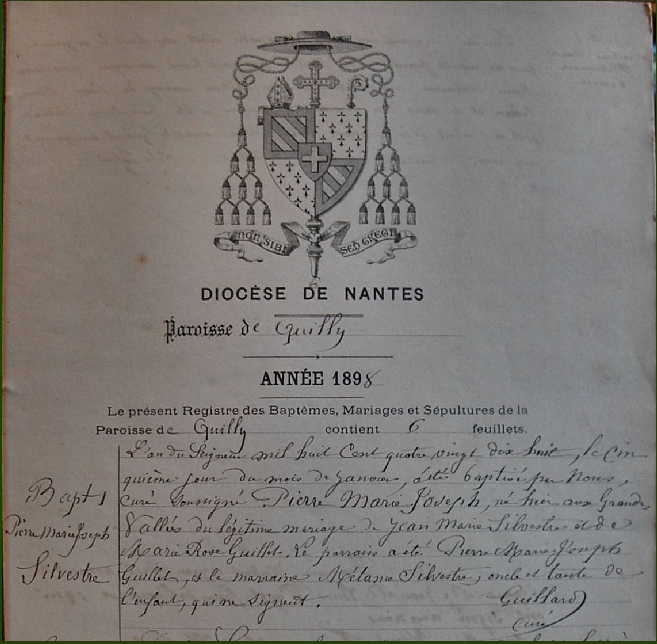 NON SIBI SED GREGI
DIOCÈSE DE NANTES
Paroisse de Quilly
ANNÉE 1898
Le présent Registre des Baptêmes, Mariages et Sépultures de la
Paroisse de Quilly contient 6 feuillets.
L'an du Seigneur mil huit Cent quatre vingt dix huit, le cin
quième jour du mois de Janvier, a été baptisé par Nous,
Curé soussigné Pierre Marie Joseph, né hier aux Grandes
Vallées du légitime mariage de Jean Marie Silvestre et de
Marie Rose Guillet. Le parrain a été Pierre Marie Joseph
Guillet, et la marraine Mélanie Silvestre, oncle et tante de
l'enfant, qui ne signent. Guillard
Curé
Bapt
Pierre Marie Joseph
Silvestre